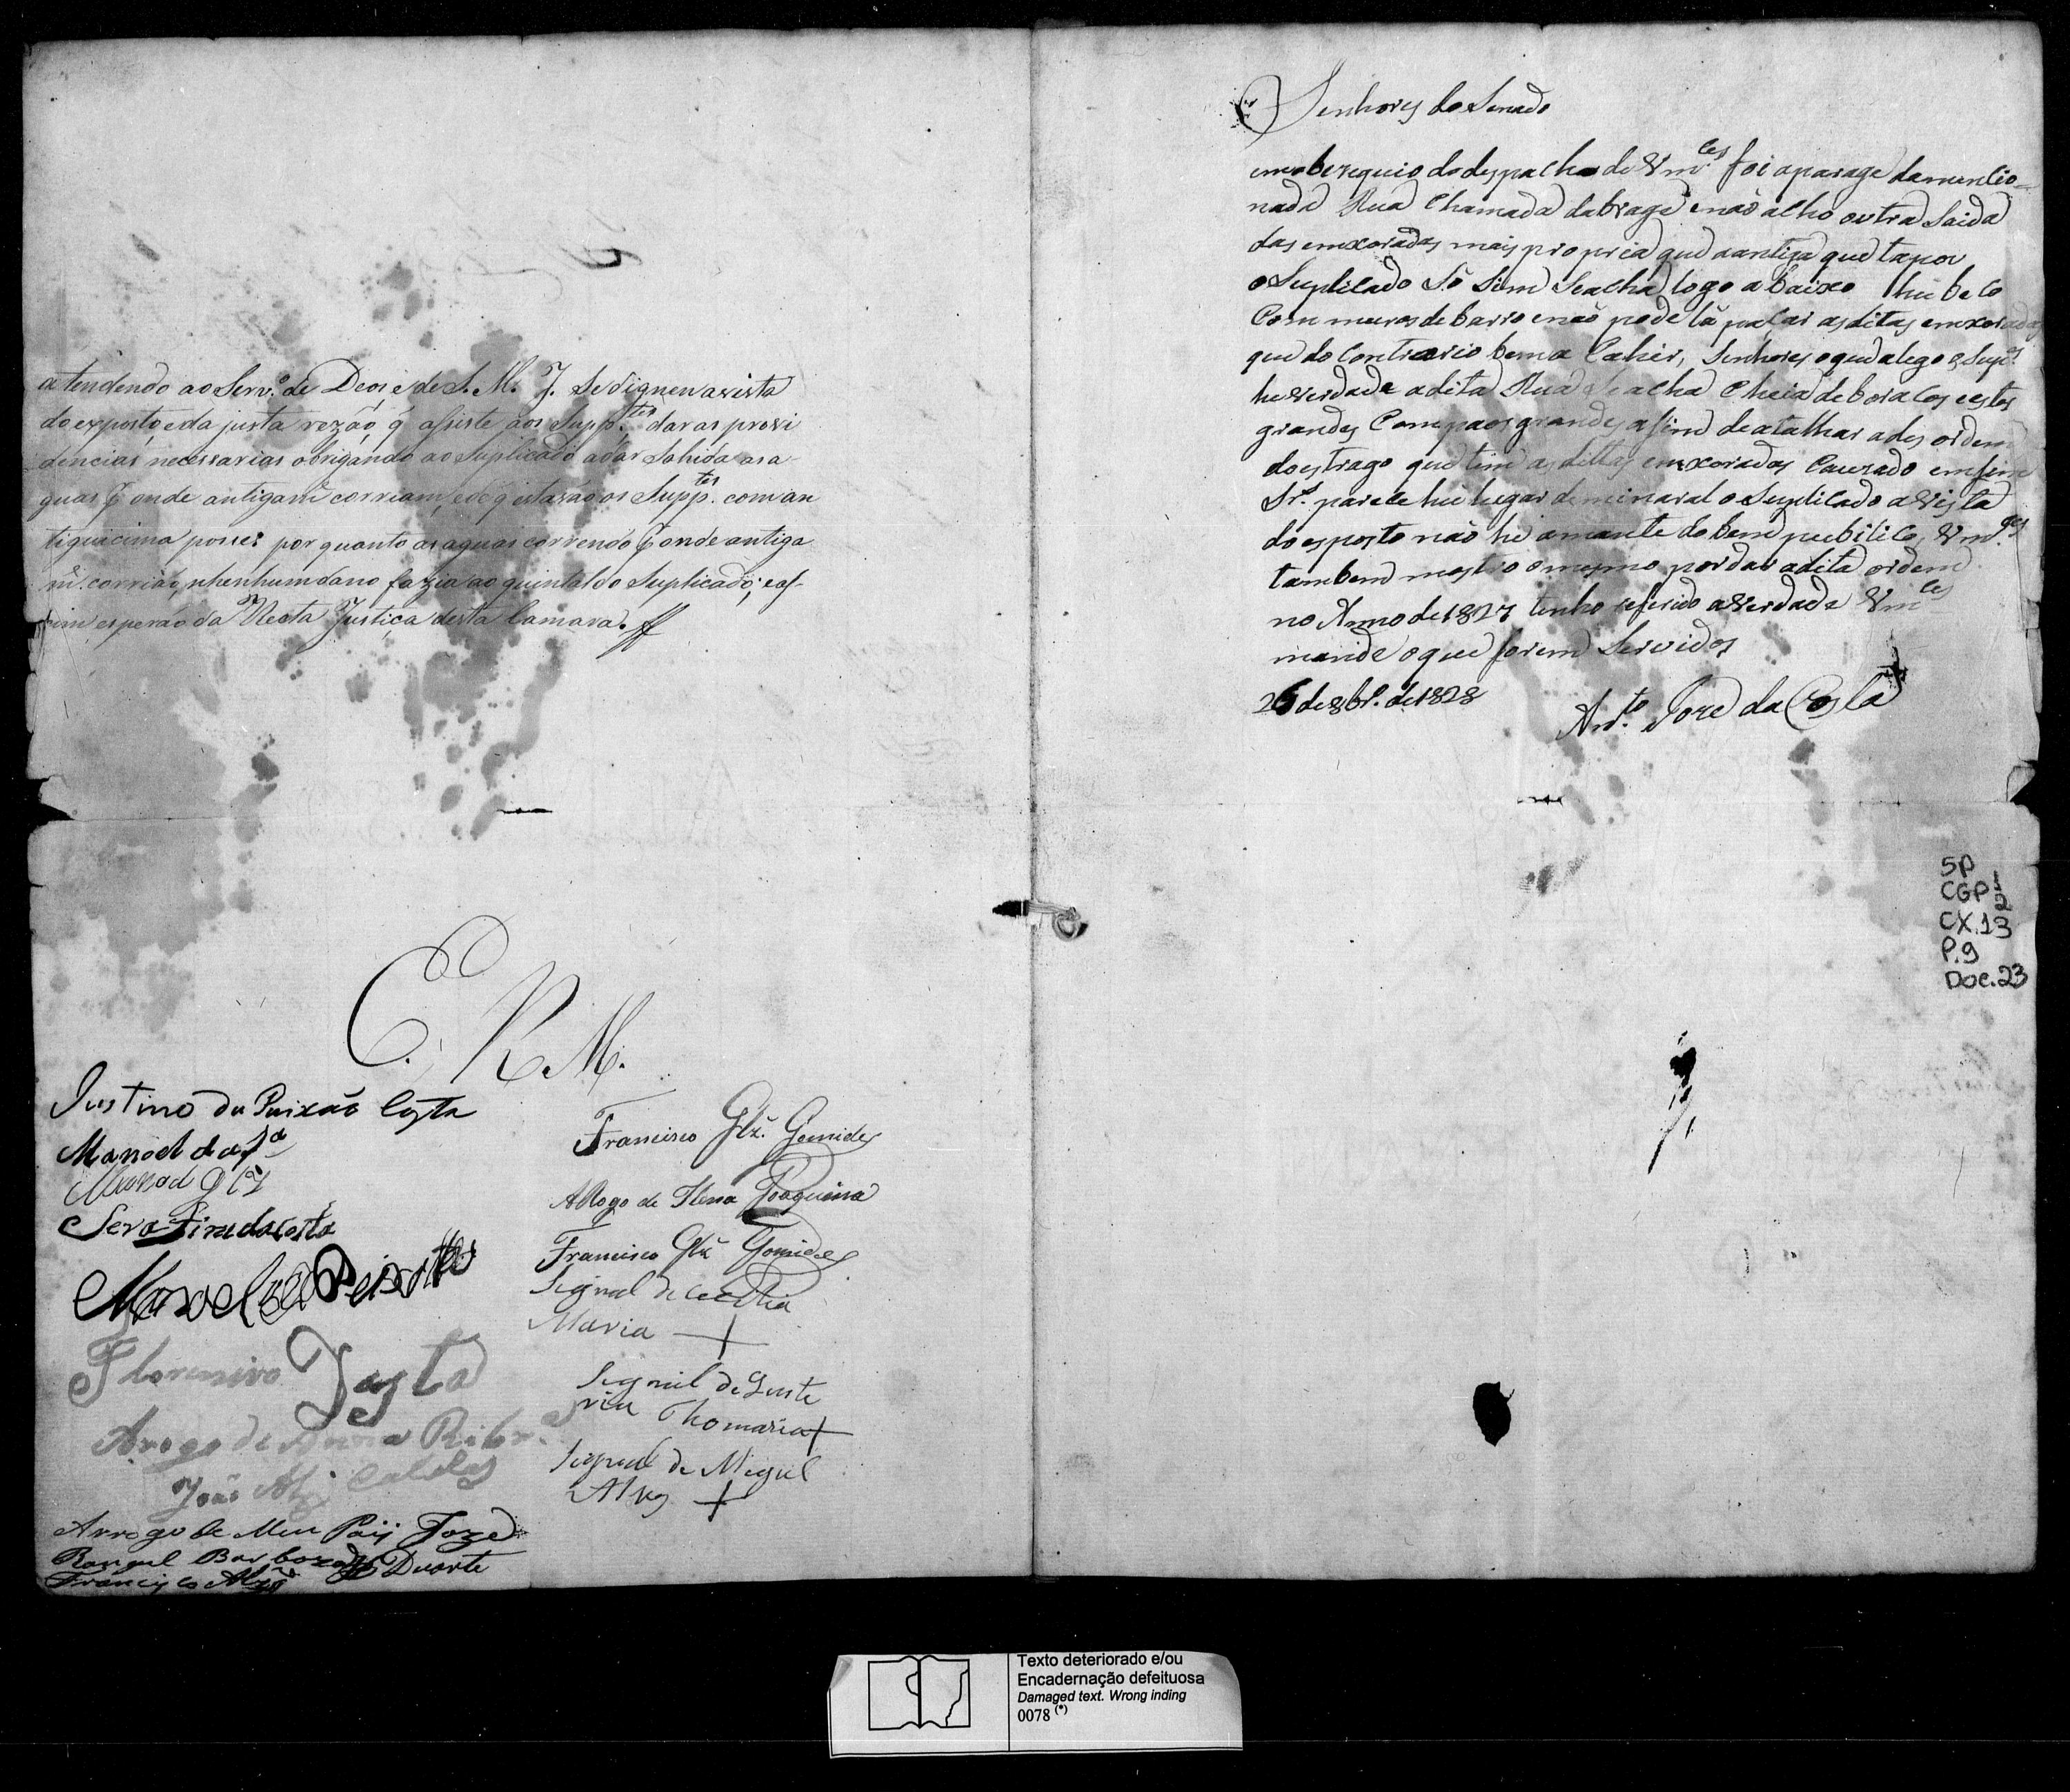 atendendo ao Serv.º de Deos, e de S. M. J. se dignem a vista
do exposto, e da justa rezão, q̃ assiste aos Supp.tes dar as provi
dencias necessarias obrigando ao Suplicado a dar Sahida as a-
guas p onde antigam.te corriam, e de q estavão os Supp.tes com an
tiquicima posse: por quanto as aguas correndo p onde antiga
m.te corrião, nhenhum dano fazia ao quintal do Suplicado; e as-
sim esperão da Recta Justiça desta Camara.
E. R. M.
Justino da Paixão Costa
Manoel da
Manoel Glz
Serafim da Costa
Manoel Peixoto
Florencio Costa
Arogo de Anna Ribr.
João Alz Caldas
Arrogo de Meu Paÿ Joze
Rangel Barboza Duarte
Francisco Alz
Francisco Glz. Gomides
A Rogo de Ilena Joaquina
Francisco Glz Gomides
Signal de Cecilia
Maria +
Signal de Quite
ria Thomazia +
Signal de Miguel
Alvs +
Senhores do Senado
em oberequio do despacho de Vm.ces foi a parage da mencio=
nada Rua Chamada da braga e não alho outra Saida
das emxoradas mais propria que a antiga que tapou
o Suplicado Só Sim Se acha logo abaixo hũ beco
Com muros de barro e não pode lá paçar as ditas emxoradas
que do Contrario bem a Cahir, Senhores o que alego os Sup.es
he verdade a dita Rua Se acha Cheia de boracos e estes
grandes Com paos grandes afim de atalhar a desordem
do estrago que tem as dittas emxoradas Cauzado emfim
Sr.s parece hũ lugar de minaral o Suplicado a vista
do esposto não he amante do bem pubilico, Vm.ces
tambem mostro o mesmo por dar a dita ordem
no Anno de 1827 tenho referido a verdade Vm.ces
mande o que forem Servidos
26 de 8br.º de 1828
Ant.to Joze da Costa
SP
CGP 1/2
CX.13
P.9
Doc.23
Texto deteriorado e/ou
Encadernação defeituosa
Damaged text. Wrong inding
0078 (*)